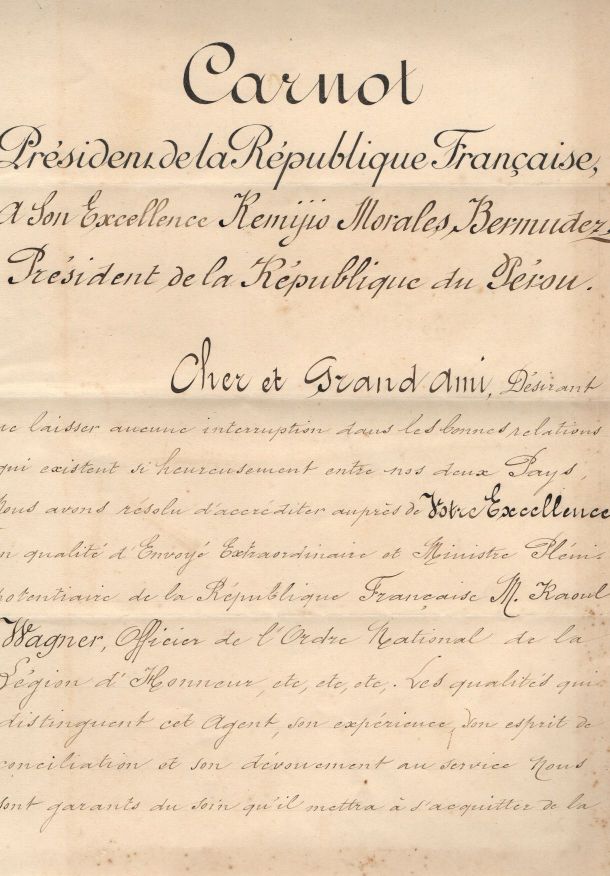 Carnot
Président de la République Française,
A Son Excellence Remijio Morales Bermudez,
Président de la République du Pérou.
Cher et Grand Ami, Désirant
ne laisser aucune interruption dans les bonnes relations
qui existent si heureusement entre nos deux Pays,
Nous avons résolu d'accréditer auprès de Votre Excellence
en qualité d'Envoyé Extraordinaire et Ministre Pléni-
potentiaire de la République Française M. Raoul
Wagner, Officier de l'Ordre National de la
Légion d'Honneur, etc, etc, etc. Les qualités qui
distinguent cet Agent, son expérience, son esprit de
conciliation et son dévouement au service Nous
sont garants du soin qu'il mettra à s'acquitter de la